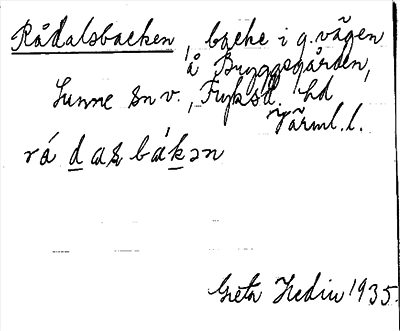 Rådalsbacken, backe i g. vägen
å Byggpgården,
Sunne sn v., Fryksd. hd
Värml. l.
rá das bákən
Greta Hedin 1935.